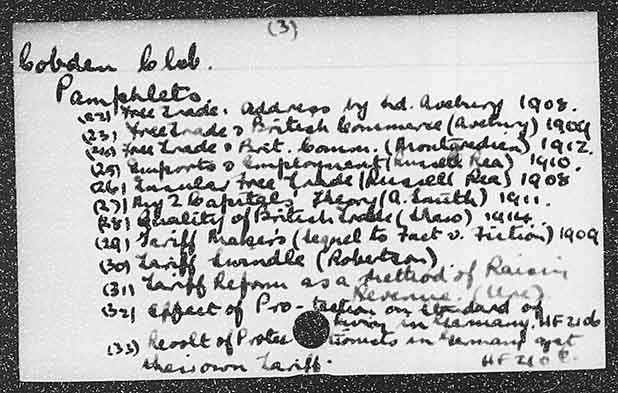 (3)
Cobden Club.
Pamphlets
(22) Free Trade. Address by Ld. Avebury 1908.
(23) Free Trade & British Commerce (Avebury) 1909
(24) Free Trade & Brit. Comm. (Montaredian) 1912.
(25) Imports & Employment (Russell Rea) 1910.
(26) Insular Free Trade (Russell Rea) 1908
(27) Theory (A. Smith) 1911.
(28) Quality of British Trade (Shaw) 1914.
(29) Tariff Makers (Sequel to Fact v. Fiction) 1909
(30) Tariff Swindle (Robertson)
(31) Tariff Reform as a Method of Raisin
Revenue. (Ure).
(32) Effect of Pro-tection on Standard of
living in Germany. HF210b
(33) Revolt of Protectionists in Germany agst
their own Tariff. HF210